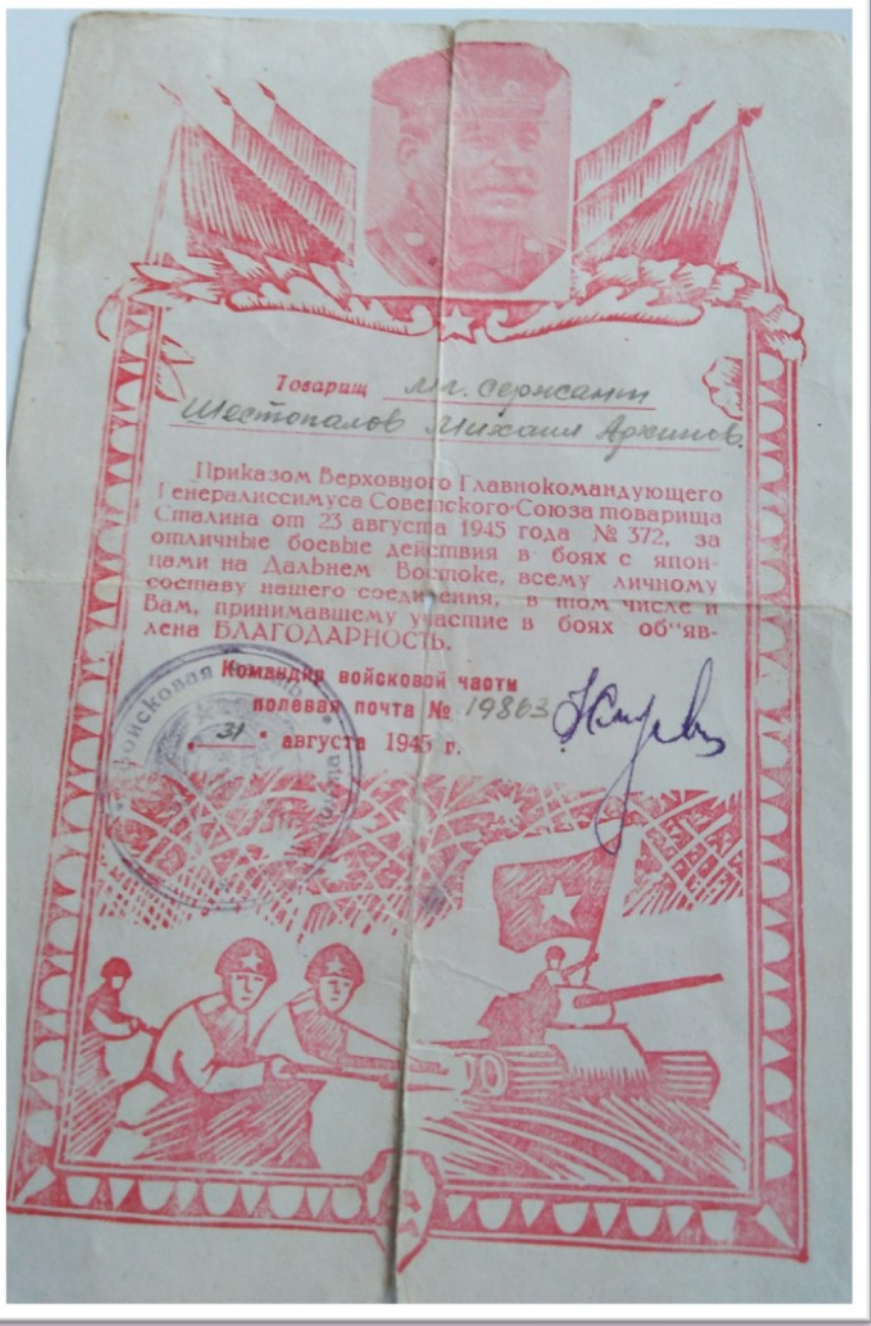 Товарищ мл. сержант
Шестопалов Михаил Архипов.
Приказом Верховного Главнокомандующего
Генералиссимуса Советского Союза товарища
Сталина от 23 августа 1945 года № 372, за
отличные боевые действия в боях с япон-
цами на Дальнем Востоке, всему личному
составу нашего соединения, в том числе и
Вам, принимавшему участие в боях об“яв-
лена БЛАГОДАРНОСТЬ.
Командир войсковой части
полевая почта № 19863
„31“ августа 1945 г.
Войсковая часть
полевая почта